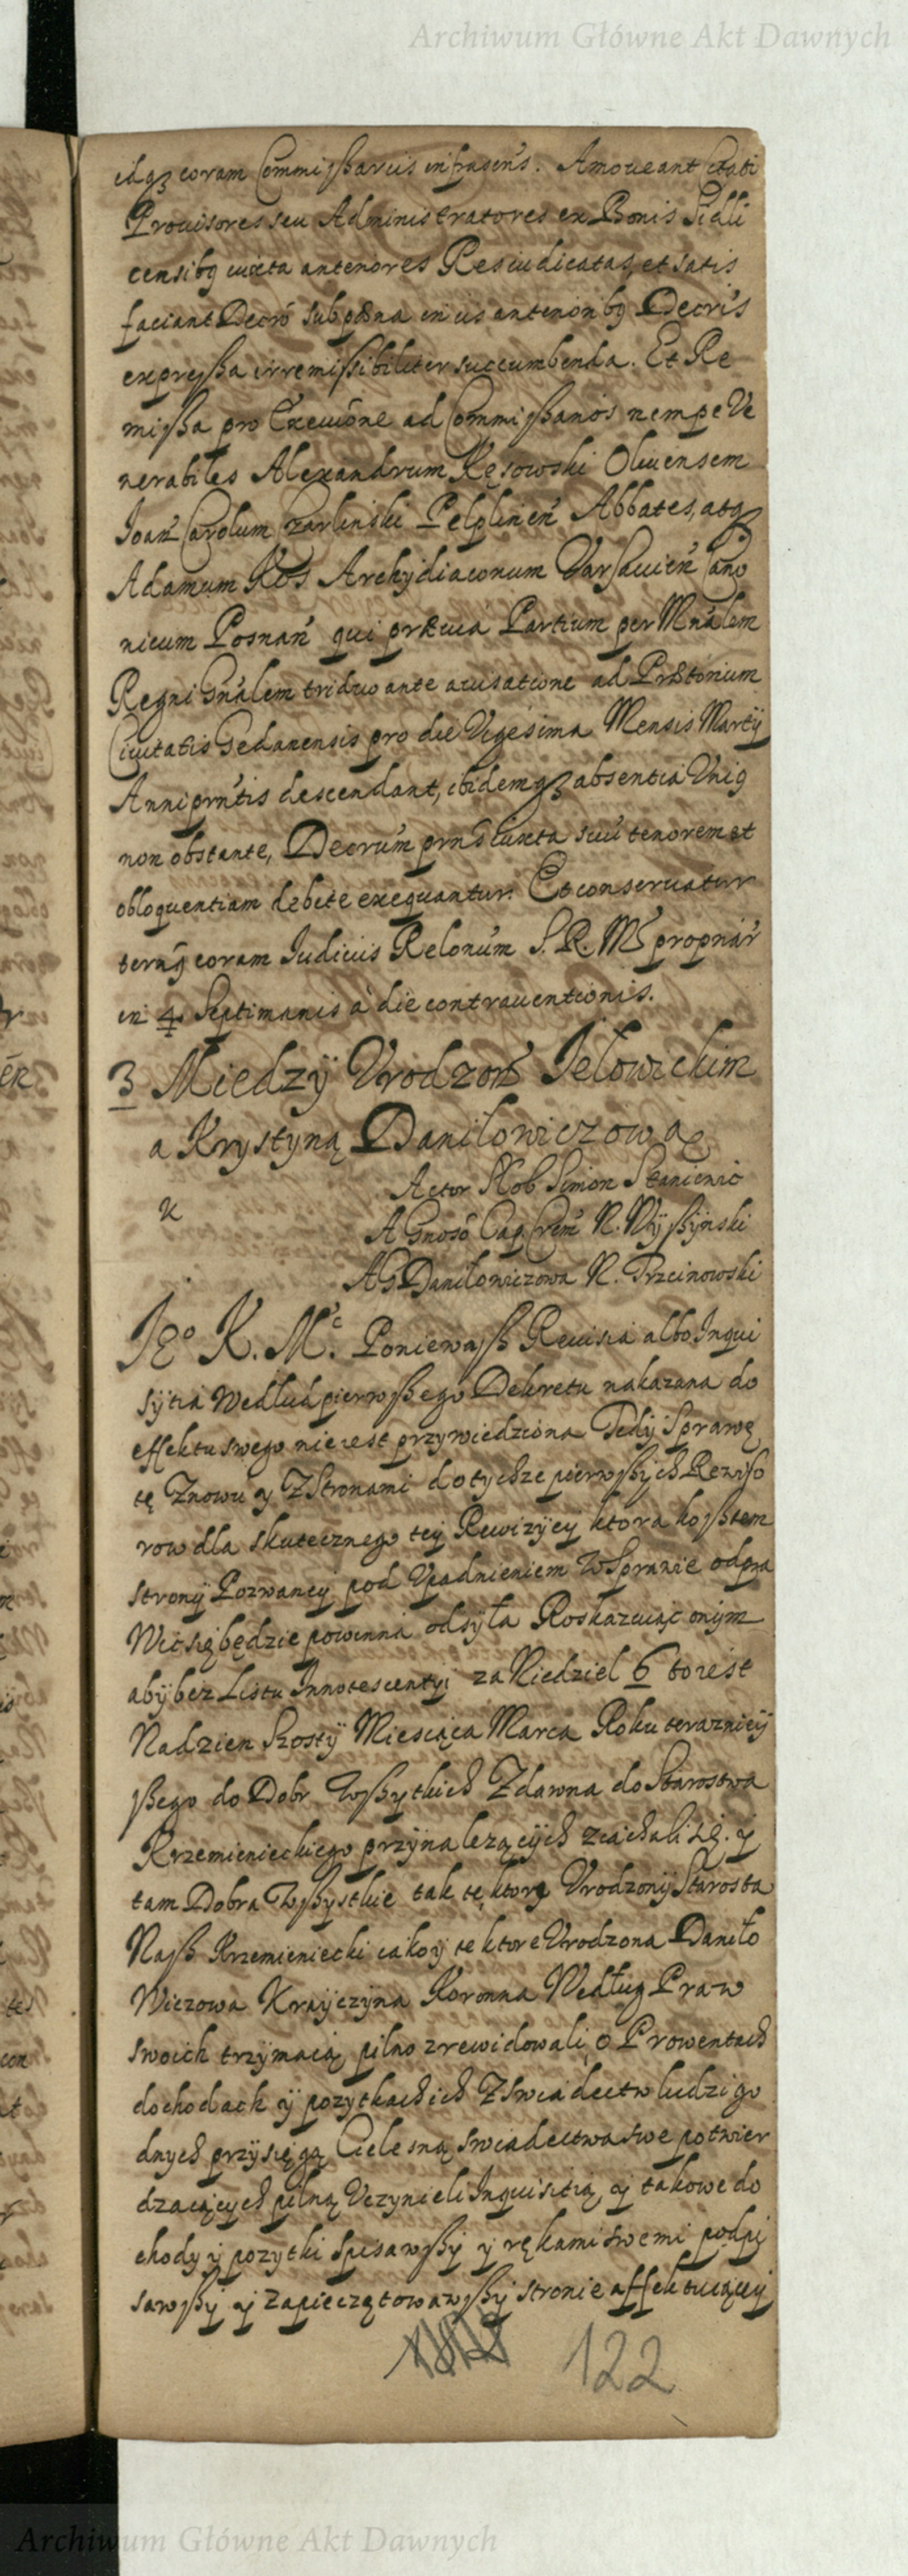 Archiwum Główne Akt Dawnych
idqz coram Commissariis infrascris. Amoueant Citati
Prouisores seu Administratores ex Bonis
censibq iuxta anteriores Resiudicatas, et satis
faciant Decro sub pœna in iis anterioribq Decris
expressa irremissibiliter succumbenda. Et Re
missa pro Execuõne ad Commissarios nempe Ve
nerabiles Alexandrum Kęsowski Oliuensem
Joan Carolum Czarlinski Pelplinen Abbates, atqz
Adamum Kos Archydiaconum Varsauien Cano
nicum Posnan qui præuia Partium per Mnrlem
Regni Gnalem triduo ante acusatione ad Prætorium
Ciuitatis Gedanensis pro die Vigesima Mensis Martij
Anni prntis descendant, ibidemqz absentia Vniq
non obstante, Decrum prns iuxta suu tenorem et
obloquentiam debite exequantur. Et conseruatur
termq coram Judiciis Relonum S. R. Mtis propriar
in 4 Septimanis a die contrauentionis.
3 Miedzÿ Vrodzom Jełowickim
a Krystyną Daniłowiczową
Actor Nob Simon
A Gnoso Cap Crem N. Wÿszÿnski
A G Daniłowiczowa N. Trzcinowski
JEo K. Mc. Poniewasz Reuisia albo Inqui
sÿtia Wedlud pierwszego Dekretu nakazana do
effektu swego nie iest przywiedziona Tedÿ Sprawę
tę Znowu y Z Stronami do tychze pierwszÿch Rewiso
row dla skutecznego teÿ Rewizÿeÿ ktora kosztem
stronÿ Pozwaneÿ pod Vpadnieniem W Sprawie odpra
Wic się będzie powinna odsyła Roskazuiąc onÿm
abÿ bez Listu Innotescentÿi za Niedziel 6 to iest
Na dzien Szostÿ Miesiąca Marca Roku terazniey
szego do Dobr Wszytkich Zdawna do Starostwa
Krzemienieckiego przÿnalezącÿch ziachali się. y
tam Dobra Wszystkie tak te ktore Vrodzonÿ Starosta
Nasz Krzemieniecki iako y te ktore Vrodzona Daniło
Wiczowa Krayczÿna Koronna Według Praw
swoich trzymaią pilno zrewidowali, o Prowentach
dochodach ÿ pozytkach ich Z swiadectw ludzi go
dnych przÿsięgą Cielesną swiadectwa swe potwier
dzaiących pilną Vczynieli Inquisitią, y takowe do
chody y pozytki spisawszy y rękami swemi podpi
sawszy y zapieczętowawszÿ stronie affektuiąceÿ
122
Archiwum Główne Akt Dawnych